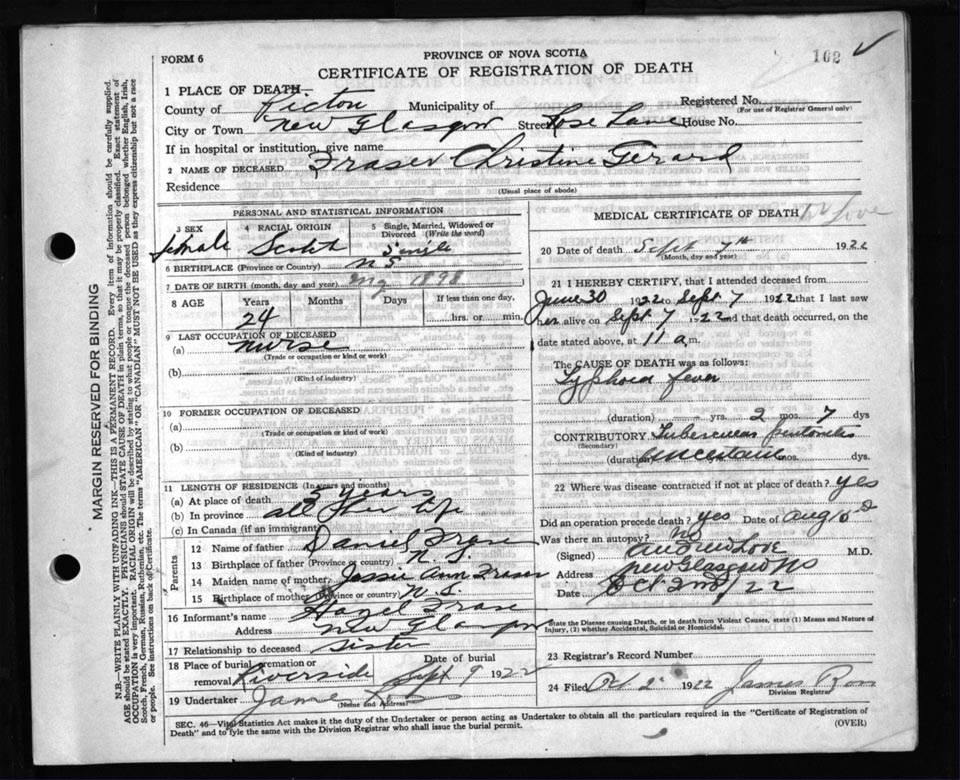 FORM 6
PROVINCE OF NOVA SCOTIA
162
CERTIFICATE OF REGISTRATION OF DEATH
1 PLACE OF DEATH
County of Pictou Municipality of Registered No.
(For use of Registrar General only)
City or Town New Glasgow Street Rose Lane House No.
If in hospital or institution, give name
2 NAME OF DECEASED Fraser Christine Gerard
Residence
(Usual place of abode)
PERSONAL AND STATISTICAL INFORMATION
3 SEX 4 RACIAL ORIGIN 5 Single, Married, Widowed or Divorced (Write the word)
female Scotch Single
6 BIRTHPLACE (Province or Country) N S
7 DATE OF BIRTH (month, day and year) 1898
8 AGE Years Months Days If less than one day,
24 hrs. or min.
9 LAST OCCUPATION OF DECEASED
(a) Nurse
(Trade or occupation or kind or work)
(b)
(Kind of industry)
10 FORMER OCCUPATION OF DECEASED
(a)
(Trade or occupation or kind of work)
(b)
(Kind of industry)
11 LENGTH OF RESIDENCE (In years and months)
(a) At place of death 3 years
(b) In province all her life
(c) In Canada (if an immigrant)
Parents
12 Name of father Daniel Fraser
13 Birthplace of father (Province or country) N. S.
14 Maiden name of mother Jessie Ann Fraser
15 Birthplace of mother (Province or country) N. S.
16 Informant's name Hazel Fraser
Address New Glasgow
17 Relationship to deceased Sister
18 Place of burial, cremation or removal Riverside Date of burial Sept 9 1922
19 Undertaker James
(Name and Address)
MEDICAL CERTIFICATE OF DEATH Dr Love
20 Date of death Sept 7th 1922
(Month, day and year)
21 I HEREBY CERTIFY, that I attended deceased from
June 30 1922 to Sept 7 1922 that I last saw
her alive on Sept 7 1922 and that death occurred, on
date stated above, at 11 a m.
The CAUSE OF DEATH was as follows:
Typhoid fever
(duration) yrs. 2 mos. 7 dys
CONTRIBUTORY Tubercular peritonitis
(Secondary)
(duration) uncertain mos. dys.
22 Where was disease contracted if not at place of death? yes
Did an operation precede death? yes Date of Aug
Was there an autopsy? No
(Signed) Andrew Love M.D.
Address New Glasgow NS
Date Oct 2nd / 22
State the Disease causing Death, or in death from Violent Causes, state (1) Means and Nature of
Injury, (2) whether Accidental, Suicidal or Homicidal.
23 Registrar's Record Number
24 Filed Oct 2 1922 James
Division Registrar
SEC. 46—Vital Statistics Act makes it the duty of the Undertaker or person acting as Undertaker to obtain all the particulars required in the "Certificate of Registration of
Death" and to fyle the same with the Division Registrar who shall issue the burial permit.
(OVER)
MARGIN RESERVED FOR BINDING
N.B.—WRITE PLAINLY WITH UNFADING INK—THIS IS A PERMANENT RECORD. Every item of information should be carefully supplied.
AGE should be stated EXACTLY. PHYSICIANS should STATE CAUSE OF DEATH in plain terms, so that it may be properly classified. Exact statement of
OCCUPATION is very important. RACIAL ORIGIN will be described by stating to what people or tongue the deceased person belonged whether English, Irish,
Scotch, French, German, Russian, Ruthenian, etc. The terms "AMERICAN" or "CANADIAN" MUST NOT BE USED as they express citizenship but not a race
or people. See instructions on back of Certificate.